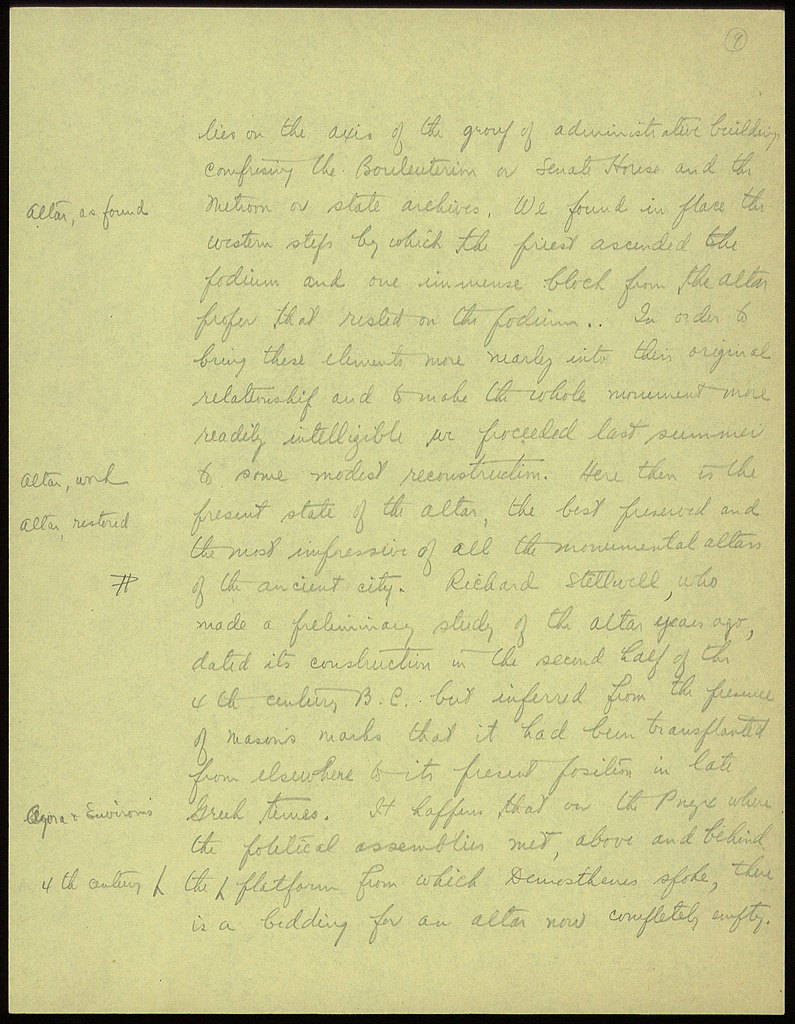 9
lies on the axis of the group of administrative buildings
comprising the Bouleuterion or Senate House and the
Altar, as found
Metroon or state archives. We found in place the
western steps by which the priest ascended the
podium and one immense block from the altar
proper that rested on the podium.. In order to
bring these elements more nearly into their original
relationship and to make the whole monument more
readily intelligible we proceeded last summer
Altar, work
to some modest reconstruction. Here then is the
Altar, restored
present state of the altar, the best preserved and
the most impressive of all the monumental altars
#
of the ancient city. Richard Stillwell, who
made a preliminary study of the altar years ago,
dated its construction in the second half of the
4th century B.C. but inferred from the presence
of mason's marks that it had been transplanted
from elsewhere to its present position in late
Agora & Environs
Greek times. It happens that on the Pnyx where
the political assemblies met, above and behind
4th century
the platform from which Demosthenes spoke, there
is a bedding for an altar now completely empty.